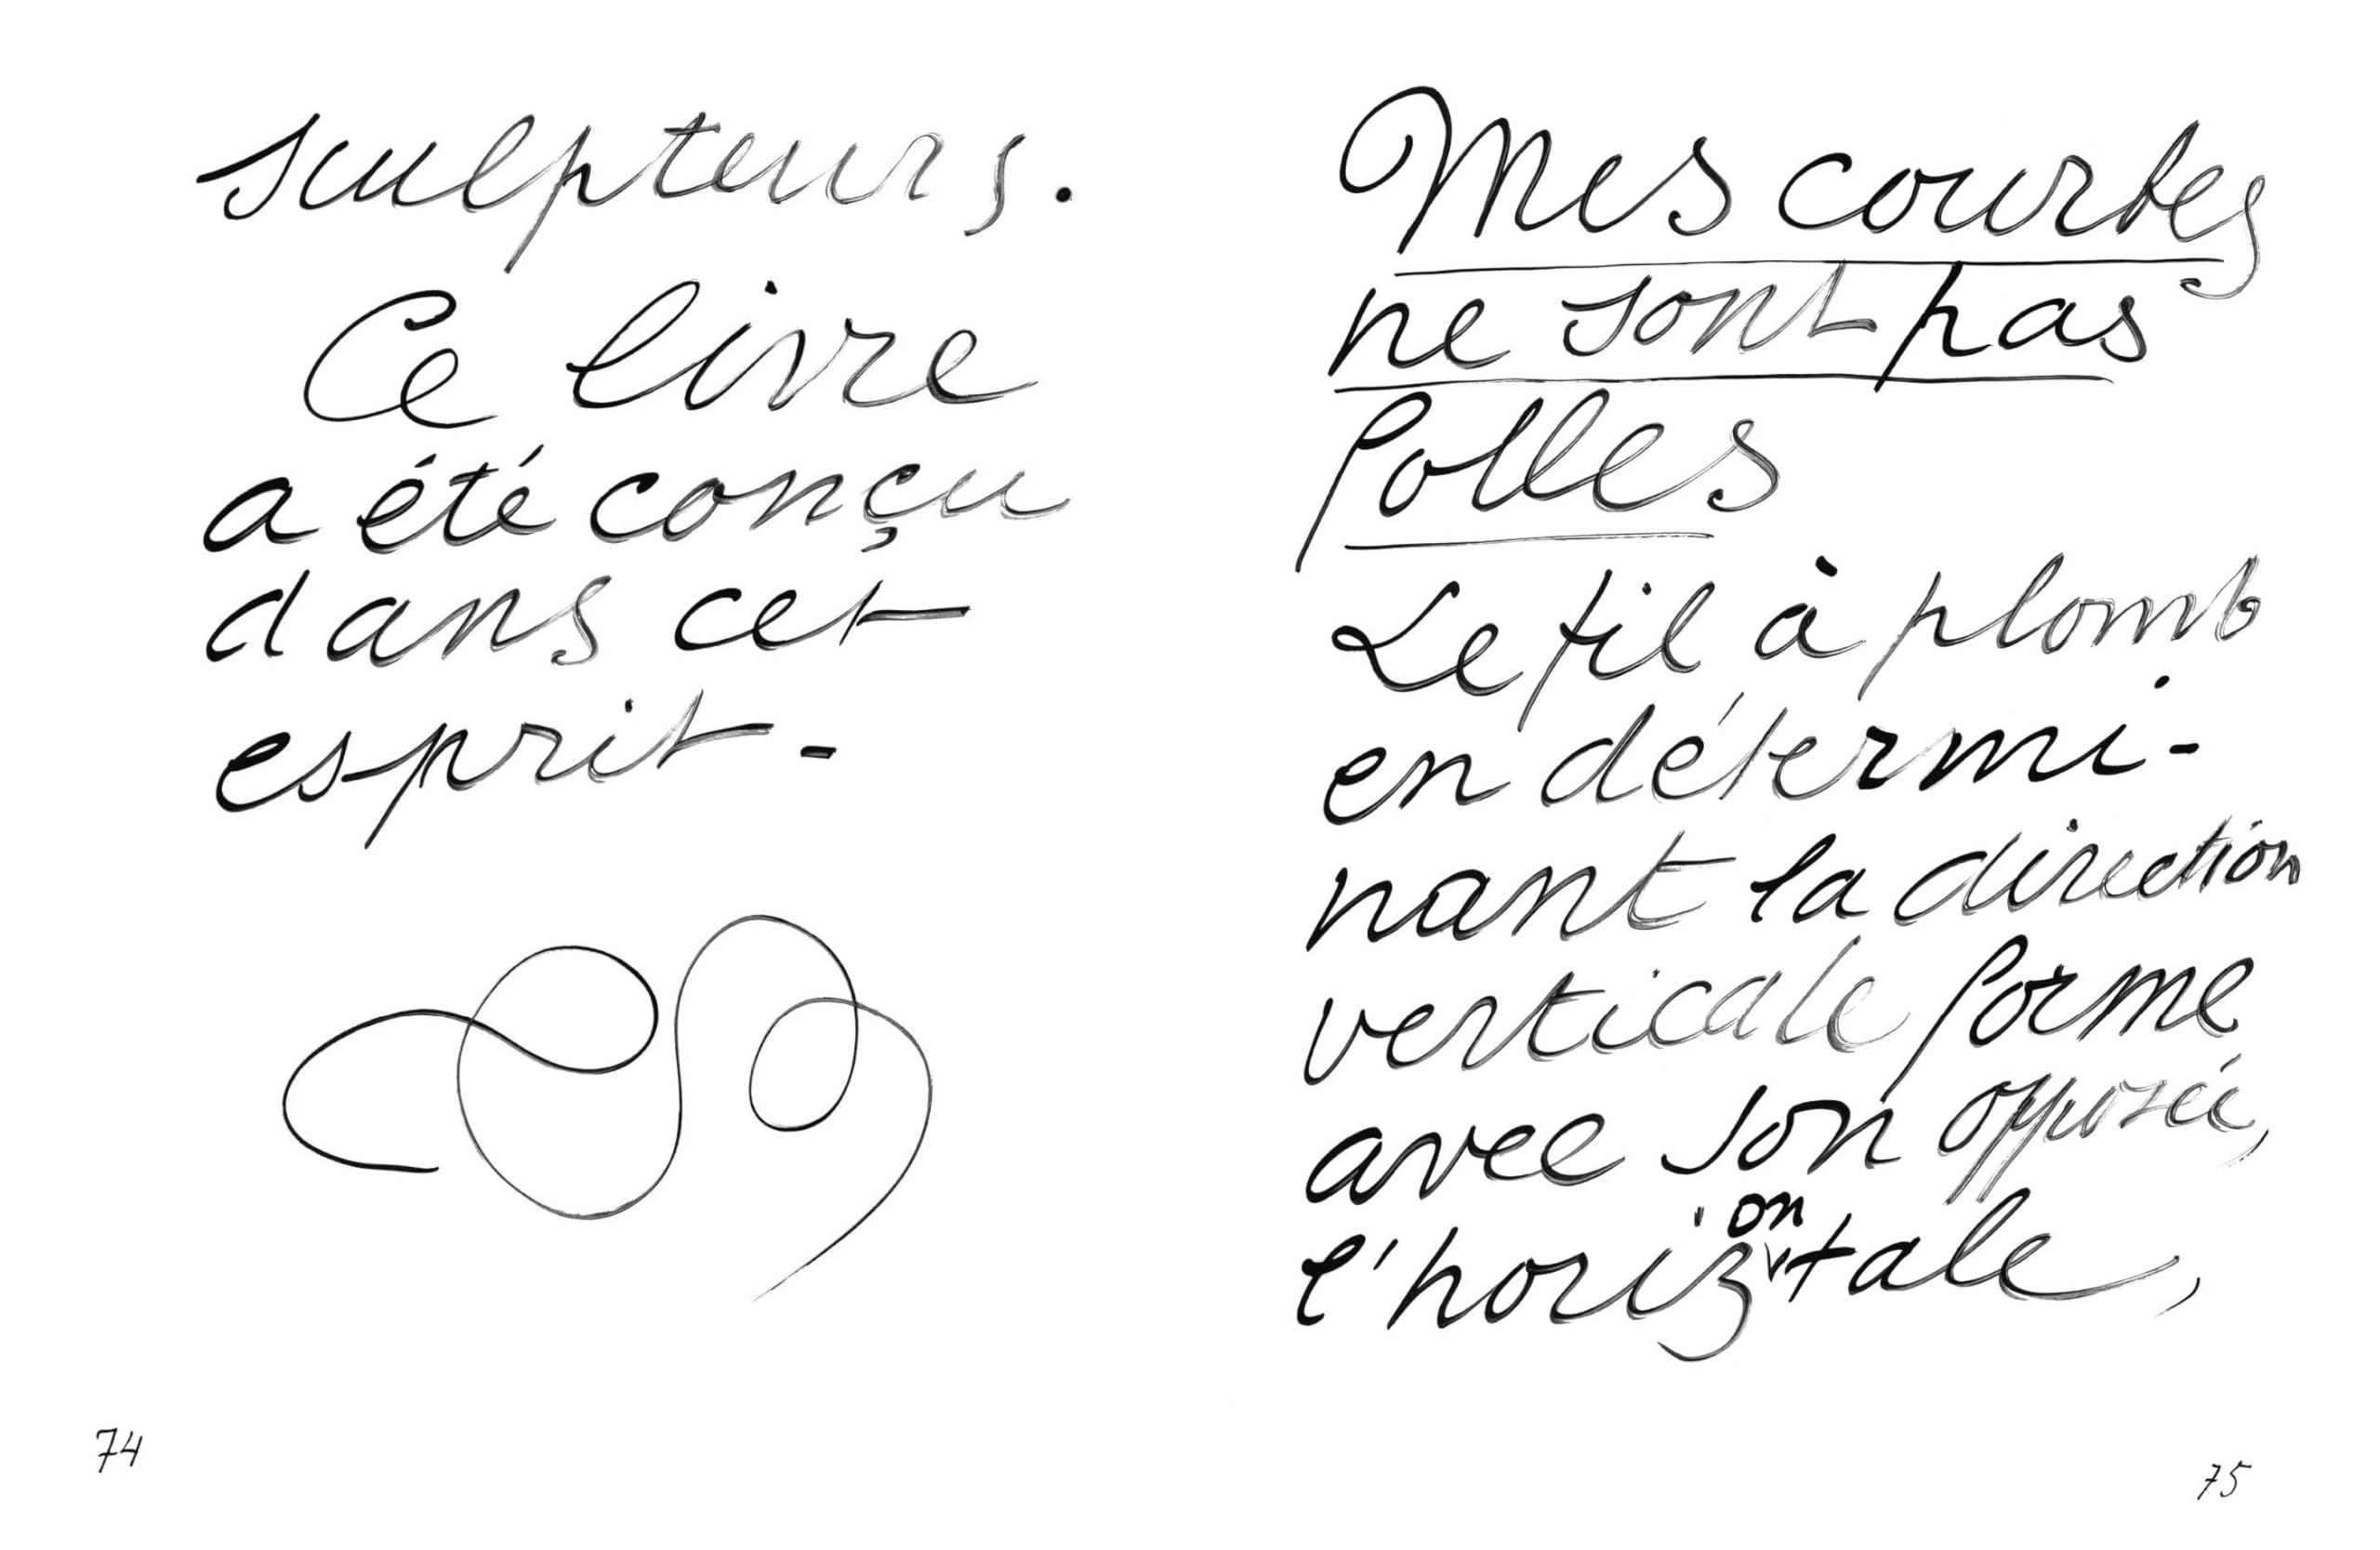 sculpteurs.
Ce livre
a été conçu
dans cet
esprit -
74
Mes courbes
ne sont pas
folles
Le fil à plomb
en détermi-
nant la direction
verticale forme
avec son opposée,
l'horizontale,
75